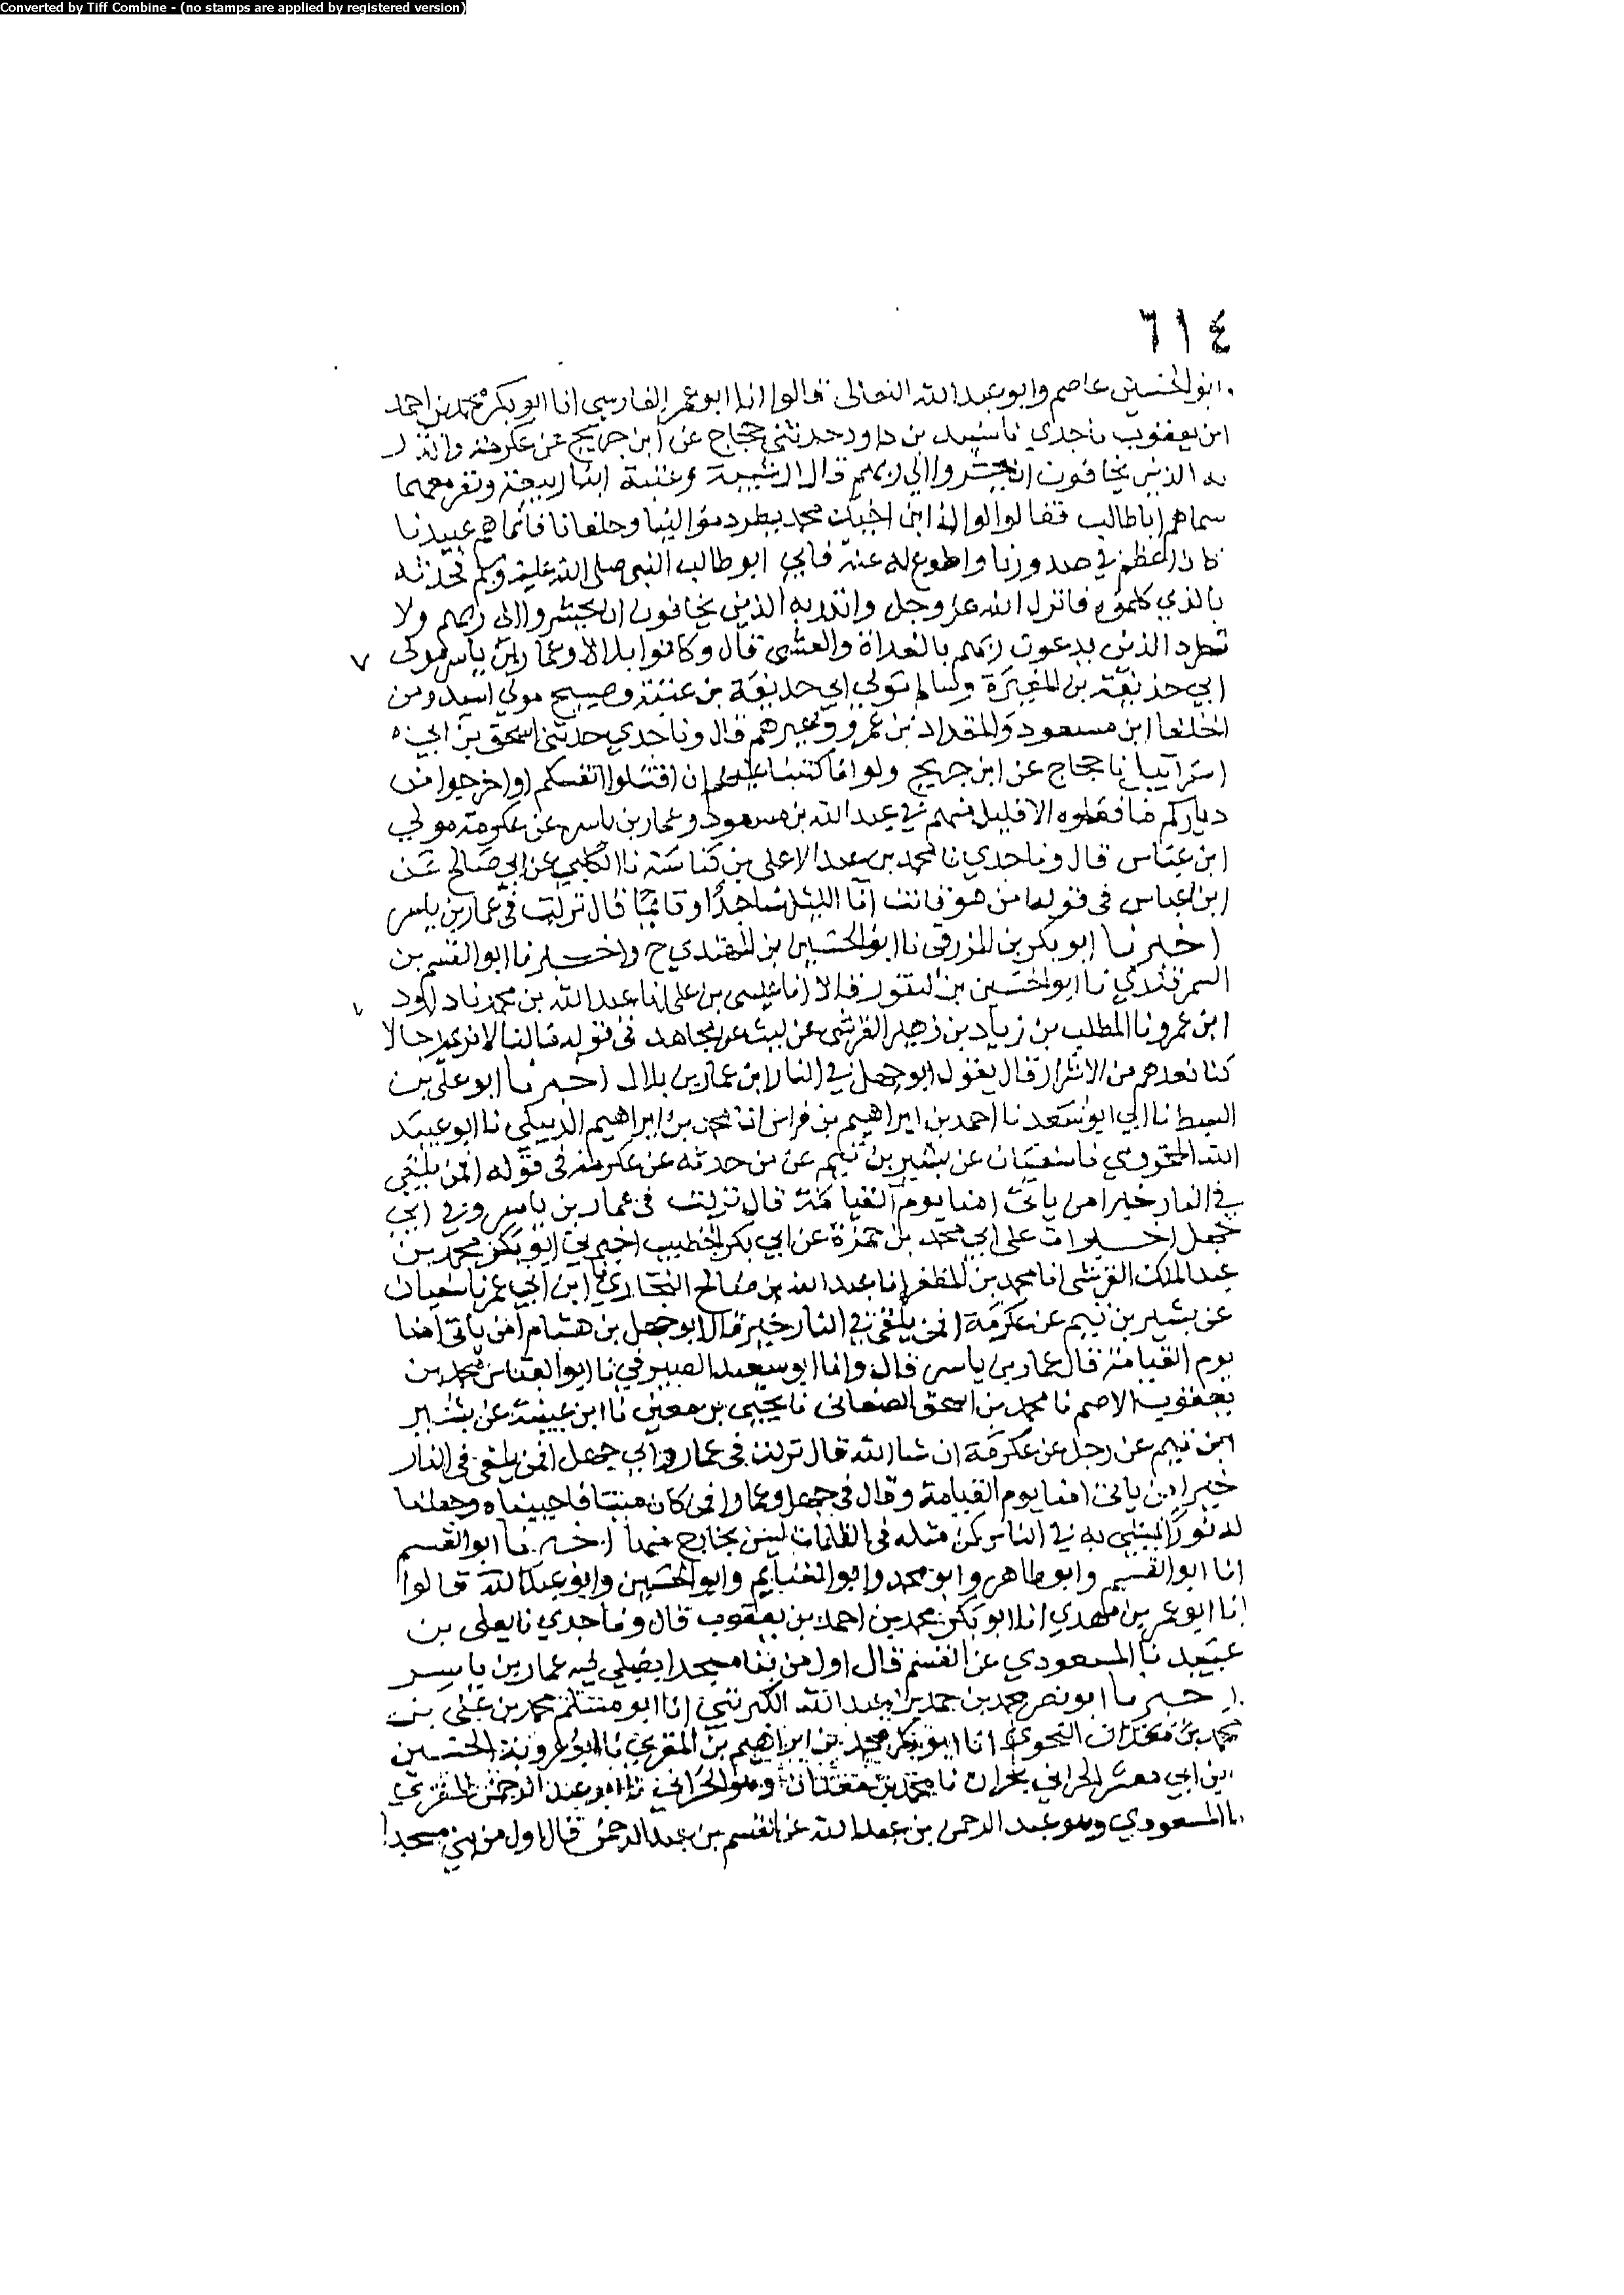 Converted by Tiff Combine - (no stamps are applied by registered version)
٦١٤
وابو الحسين عاصم وابو عبد الله النعالى قالوا انا ابو عمر الفارسي انا ابو بكر محمد بن احمد
ابن يعقوب نا جدي نا سنيد بن داود حدثني حجاج عن ابن جريج عن عكرمة وانذر
به الذين يخافون ان يحشروا الي ربهم قال شيبة وعتبة ابنا ربيعة ونفر معهما
سماهم ابا طالب فقالوا لو ان ابن اخيك محمد يطرد موالينا وحلفانا فانما هم عبيدنا
كان اعظم في صدورنا واطوع له عندنا فاتي ابو طالب النبي صلى الله عليه وسلم فحدثه
بالذي كلموه فانزل الله عز وجل وانذر به الذين يخافون ان يحشروا الى ربهم ولا
تطرد الذين يدعون ربهم بالغداة والعشي قال وكانوا بلالا وعمار ابن ياسر مولى
ابي حذيفة بن المغيرة وسالم مولي ابي حذيفة بن عتبة وصبيح مولي اسيد ومن
الحلفا ابن مسعود والمقداد بن عمرو وغيرهم قال ونا جدي حدثني اسحق بن ابي
اسرائيل نا حجاج عن ابن جريج ولو انا كتبنا عليهم ان اقتلوا انفسكم او اخرجوا من
دياركم ما فعلوه الا قليل منهم في عبد الله بن مسعود وعمار بن ياسر عن عكرمة مولي
ابن عباس قال ونا جدي نا محمد بن عبد الاعلى بن كناسة نا الكلبي عن ابي صالح عن
ابن عباس في قوله امن هو قانت انا الليل ساجدا وقائما قال نزلت في عمار بن ياسر
اخبرنا ابو بكر بن المزرقي نا ابو الحسين بن المهتدي ح واخبرنا ابو القسم بن
السمرقندي نا ابو الحسين بن النقور قالا انا عيسى بن علي انا عبد الله بن محمد نا داود
ابن عمرو نا المطلب بن زياد بن زهير القرشي عن ليث عن مجاهد في قوله ما لنا لا نرى رجالا
كنا نعدهم من الاشرار قال يقول ابو جهل في النار اين عمار اين بلال اخبرنا ابو علي بن
السبط نا ابي ابو سعد نا احمد بن ابراهيم بن فراس انا محمد بن ابراهيم الديبلي نا ابو عبيد
الله المخزومي نا سفيان عن بشير بن تيم عن من حدثه عن عكرمة في قوله افمن يلقى
في النار خير امن ياتي امنا يوم القيامة قال نزلت في عمار بن ياسر وفي ابي
جهل اخبرنا قرات على ابي محمد بن حمزة عن ابي بكر الخطيب اخبرني ابو بكر محمد بن
عبد الملك القرشي انا محمد بن المظفر انا عبد الله بن صالح البخاري نا ابن ابي عمر نا سفيان
عن بشير بن تيم عن عكرمة افمن يلقى في النار خير قال ابو جهل بن هشام امن ياتي امنا
يوم القيامة قال عمار بن ياسر قال وانا ابو سعيد الصيرفي نا ابو العباس محمد بن
يعقوب الاصم نا محمد بن اسحق الصغاني نا يحيي بن معين نا ابن عيينة عن بشير
ابن تيم عن رجل عن عكرمة ان شا الله قال نزلت في عمار وابي جهل افمن يلقى في النار
خير امن ياتي امنا يوم القيامة وقال في جهل وعمار او من كان ميتا فاحييناه وجعلنا
له نورا يمشي به في الناس كمن مثله في الظلمات ليس بخارج منها اخبرنا ابو القسم
انا ابو القسم وابو طاهر وابو محمد وابو الغنايم وابو الحسين وابو عبد الله قالوا
انا ابو عمر بن مهدي انا ابو بكر محمد بن احمد بن يعقوب قال ونا جدي نا يعلى بن
عبيد نا المسعودي عن القسم قال اول من بنا مسجدا يصلي فيه عمار بن ياسر
اخبرنا ابو نصر محمد بن حمد بن عبد الله الكبريتي انا ابو مسلم محمد بن علي بن
محمد بن النحوي انا ابو بكر محمد بن ابراهيم بن المقري نا ابو عروبة الحسين
ابن ابي معشر الحراني بحران نا محمد بن معدان وهو الحراني نا ابو عبد الرحمن المقري
نا المسعودي وهو عبد الرحمن بن عبد الله عن القسم بن عبد الرحمن قال اول من بني مسجدا